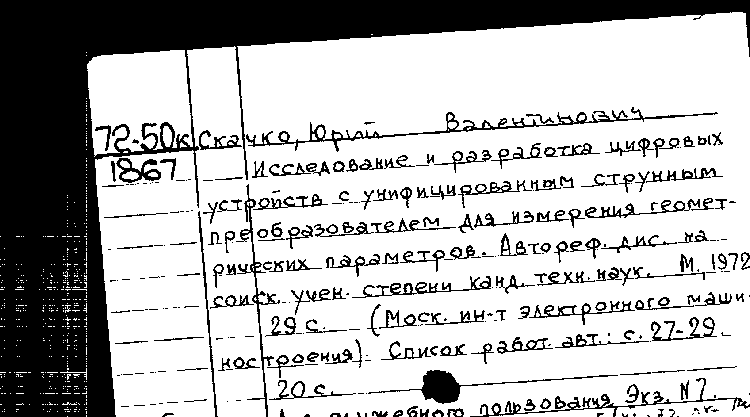 72-50к Скачко, Юрий Валентинович
1867 Исследование и разработка цифровых
устройств с унифицированным струнным
преобразователем для измерения геомет-
рических параметров. Автореф. дис. на
соиск. учен. степени канд. техн. наук. М., 1972
29 с. (Моск. ин-т электронного маши-
ностроения). Список работ авт.: с. 27-29.
20 с.
служебного пользования. Экз. N7.